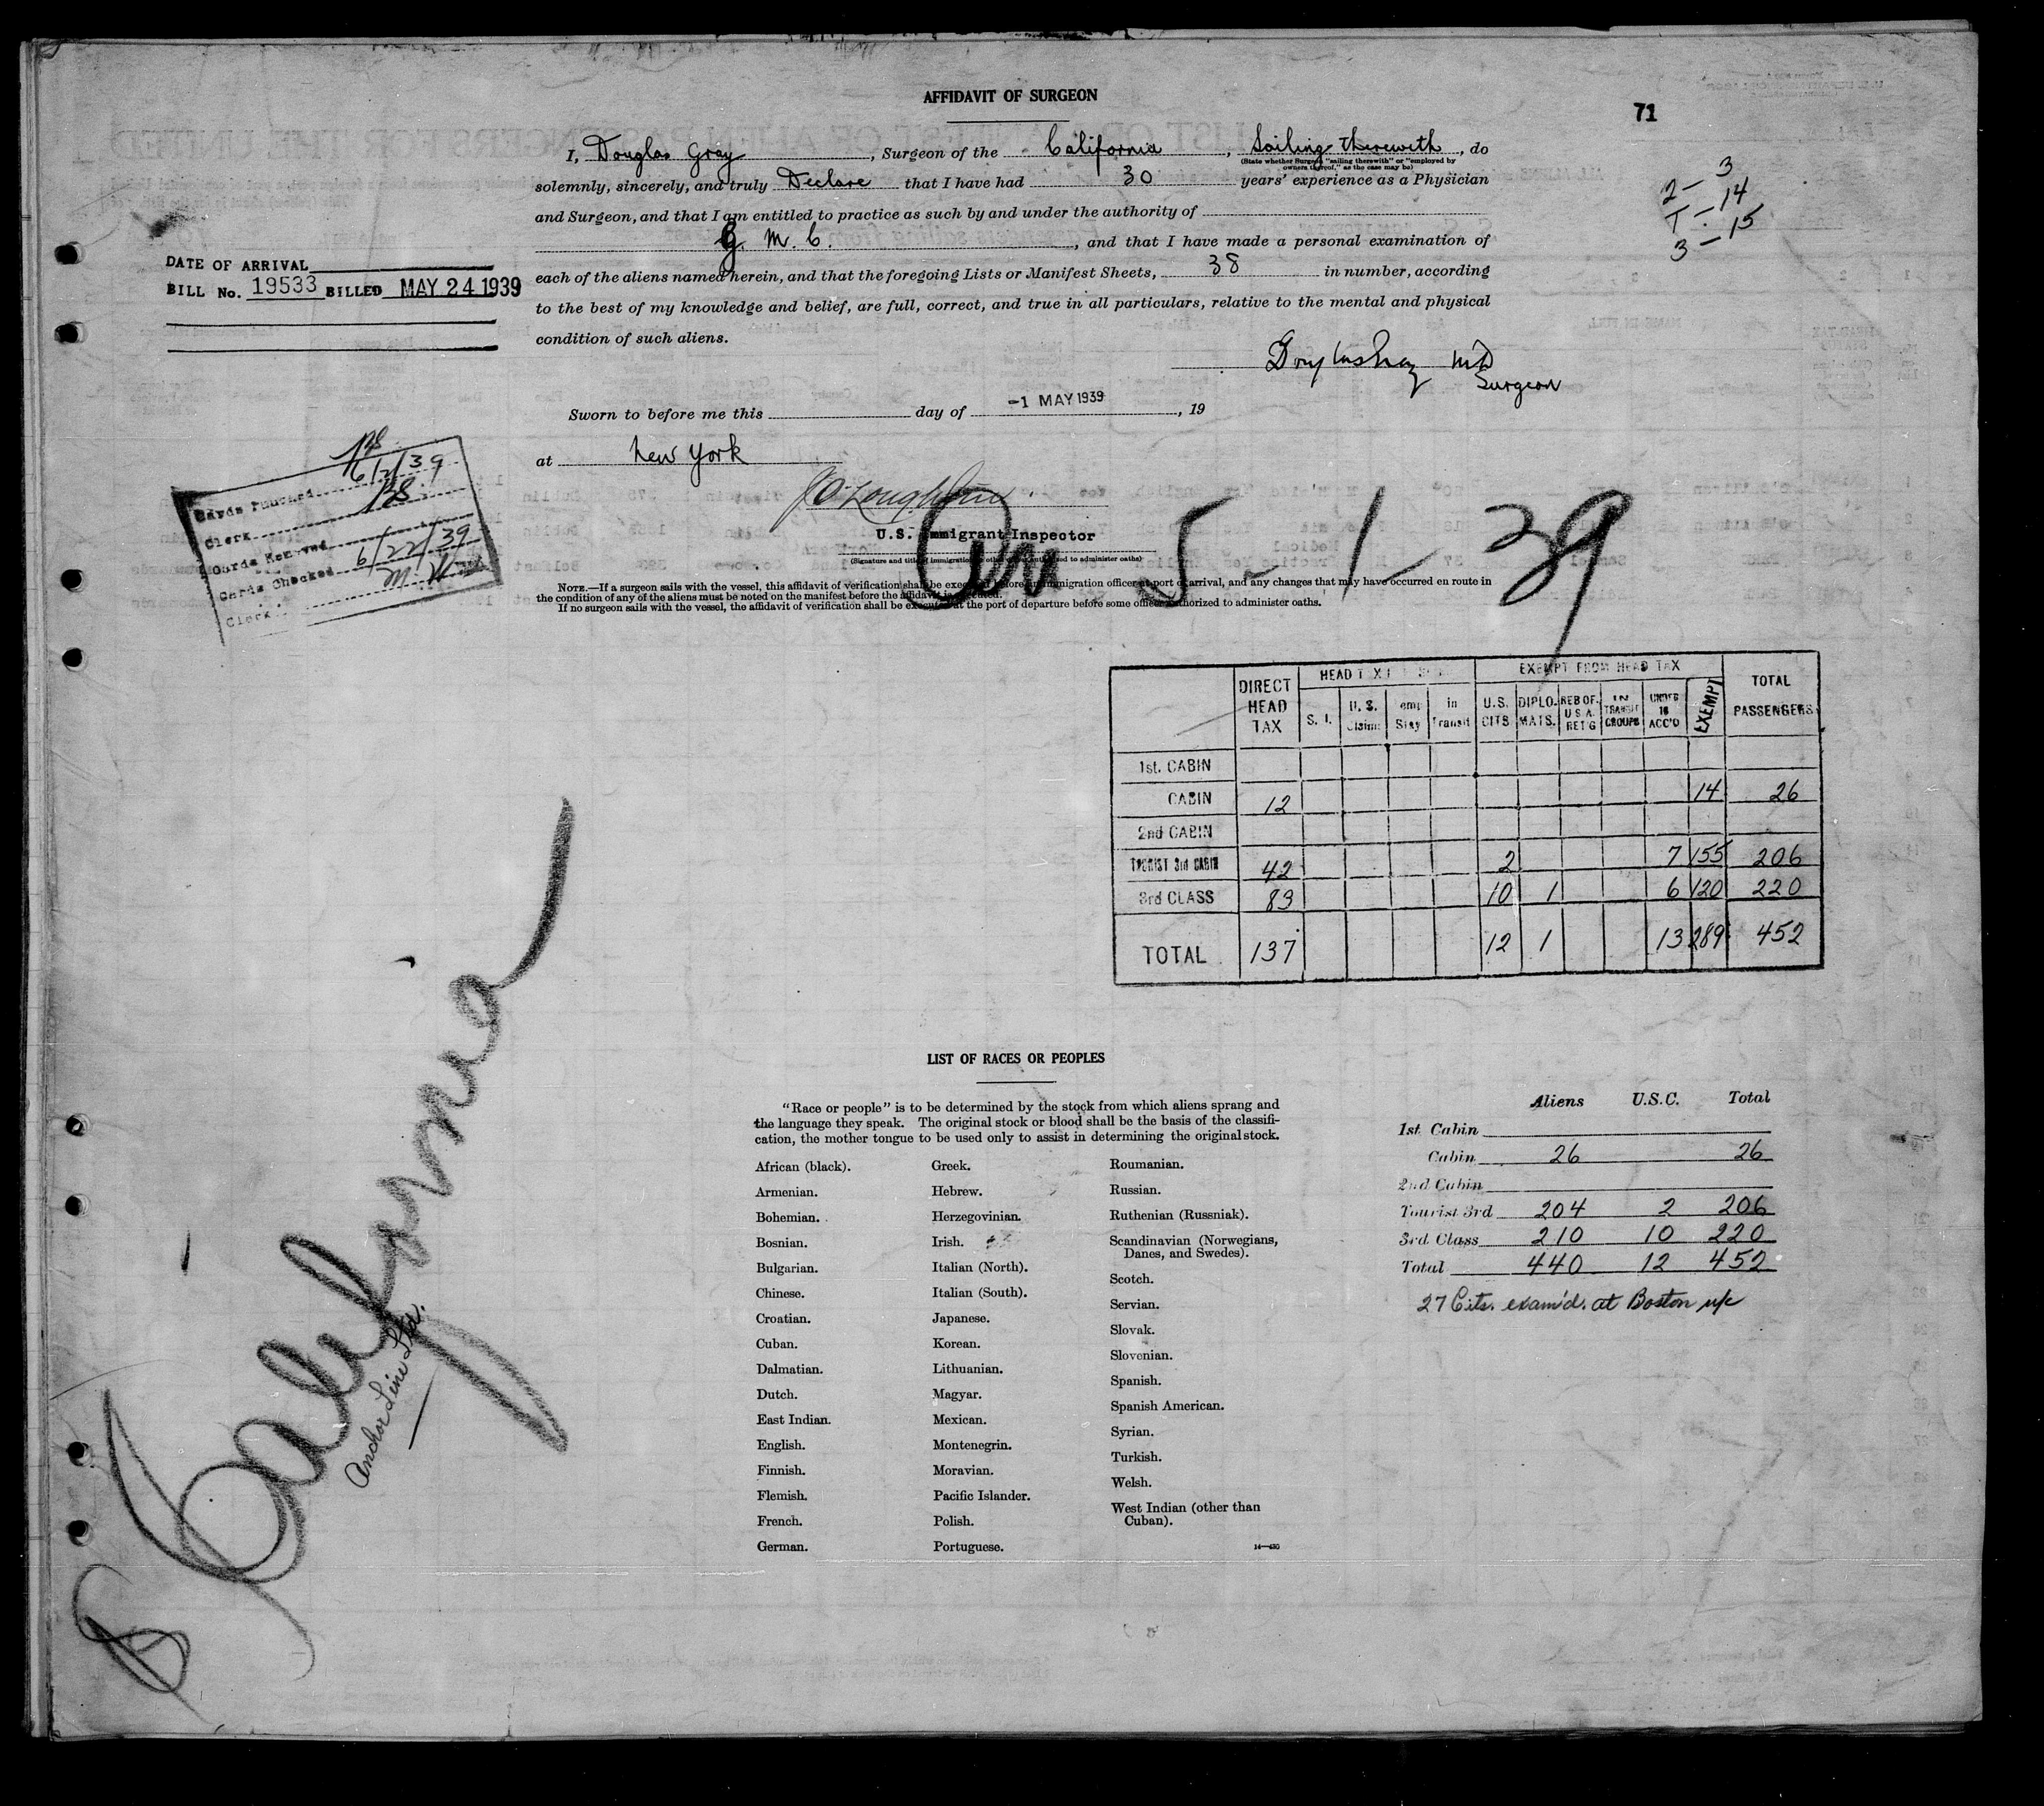 AFFIDAVIT OF SURGEON
71
I, Douglas Gray, Surgeon of the California, Sailing therewith, do
(State whether Surgeon "sailing therewith" or "employed by
owners thereof," as the case may be)
solemnly, sincerely, and truly Declare that I have had 30 years' experience as a Physician
and Surgeon, and that I am entitled to practice as such by and under the authority of
G. M. C., and that I have made a personal examination of
each of the aliens named herein, and that the foregoing Lists or Manifest Sheets, 38 in number, according
to the best of my knowledge and belief, are full, correct, and true in all particulars, relative to the mental and physical
condition of such aliens.
2 - 3
T - 14
3 - 15
DATE OF ARRIVAL
BILL No. 19533 BILLED MAY 24 1939
Douglas Gray MD
Surgeon
Sworn to before me this day of -1 MAY 1939, 19
at New York
U.S. Immigrant Inspector
(Signature and title of immigration or other officer authorized to administer oaths)
5-1-39
NOTE.—If a surgeon sails with the vessel, this affidavit of verification shall be executed before an immigration officer at port of arrival, and any changes that may have occurred en route in
the condition of any of the aliens must be noted on the manifest before the affidavit is executed.
If no surgeon sails with the vessel, the affidavit of verification shall be executed at the port of departure before some officer authorized to administer oaths.
Cards Punched 6/2/39
Clerk
Cards Removed
Cards Checked 6/22/39
Clerk
DIRECT HEAD TAX
HEAD TAX
S. I.
U. S. Claim
Temp Stay
in Transit
EXEMPT FROM HEAD TAX
U.S. CITS
DIPLO-MATS.
RES OF U S A. RET'G
IN TRANSIT GROUPS
UNDER 16 ACC'D
EXEMPT
TOTAL PASSENGERS
1st. CABIN
CABIN 12 14 26
2nd CABIN
TOURIST 3rd CABIN 42 2 7 155 206
3rd CLASS 83 10 1 6 120 220
TOTAL 137 12 1 13 289 452
California
Anchor Line Ltd.
LIST OF RACES OR PEOPLES
"Race or people" is to be determined by the stock from which aliens sprang and
the language they speak. The original stock or blood shall be the basis of the classifi-
cation, the mother tongue to be used only to assist in determining the original stock.
African (black).
Armenian.
Bohemian.
Bosnian.
Bulgarian.
Chinese.
Croatian.
Cuban.
Dalmatian.
Dutch.
East Indian.
English.
Finnish.
Flemish.
French.
German.
Greek.
Hebrew.
Herzegovinian.
Irish.
Italian (North).
Italian (South).
Japanese.
Korean.
Lithuanian.
Magyar.
Mexican.
Montenegrin.
Moravian.
Pacific Islander.
Polish.
Portuguese.
Roumanian.
Russian.
Ruthenian (Russniak).
Scandinavian (Norwegians,
Danes, and Swedes).
Scotch.
Servian.
Slovak.
Slovenian.
Spanish.
Spanish American.
Syrian.
Turkish.
Welsh.
West Indian (other than
Cuban).
Aliens U.S.C. Total
1st Cabin
Cabin 26 26
2nd Cabin
Tourist 3rd 204 2 206
3rd Class 210 10 220
Total 440 12 452
27 Cits. exam'd. at Boston